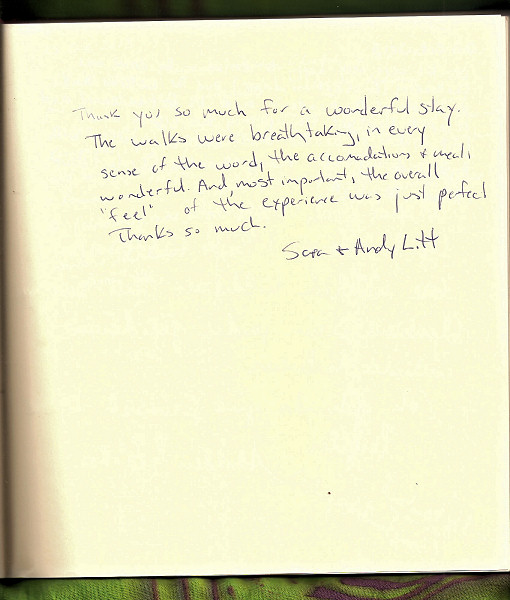 Thank you so much for a wonderful stay.
The walks were breathtaking, in every
sense of the word, the accomodations + meals
wonderful. And, most important, the overall
"feel" of the experience was just perfect
Thanks so much.
Sara + Andy Litt